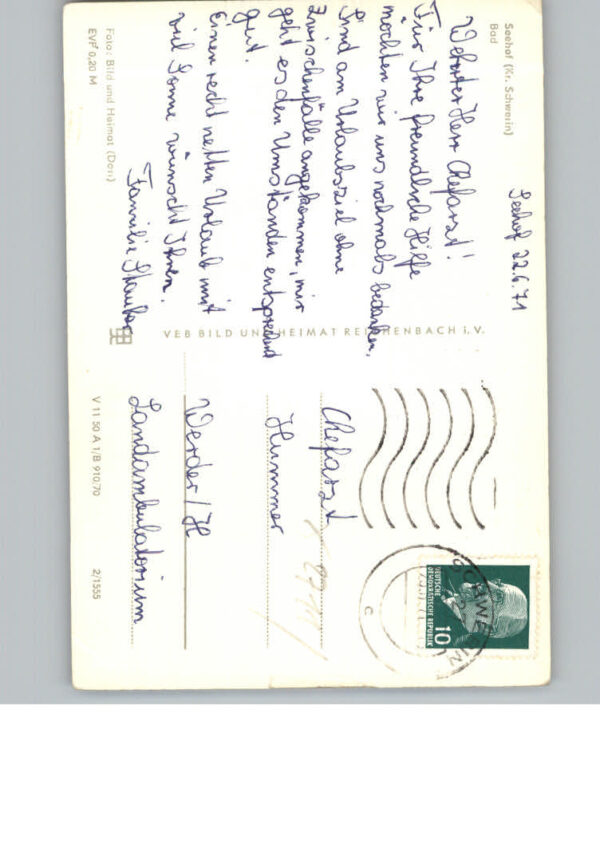 Seehof (Kr. Schwerin)
Bad
Seehof 22.6.71
Wehrter Herr Chefarzt!
Für Ihre freundliche Hilfe
möchten wir uns nochmals bedanken,
sind am Urlaubsziel ohne
Zwischenfälle angekommen, mir
geht es den Umständen entsprechend
gut.
Einen recht netten Urlaub mit
viel Sonne wünscht Ihnen
Familie Stauber
Foto: Bild und Heimat (Darr)
EVP 0,20 M
VEB BILD UND HEIMAT REICHENBACH i. V.
Chefarzt
Hummer
Werder/H
Landambulatorium
V 11 50 A 1/B 910.70
2/1555
SCHWERIN
c
DEUTSCHE
DEMOKRATISCHE REPUBLIK
10